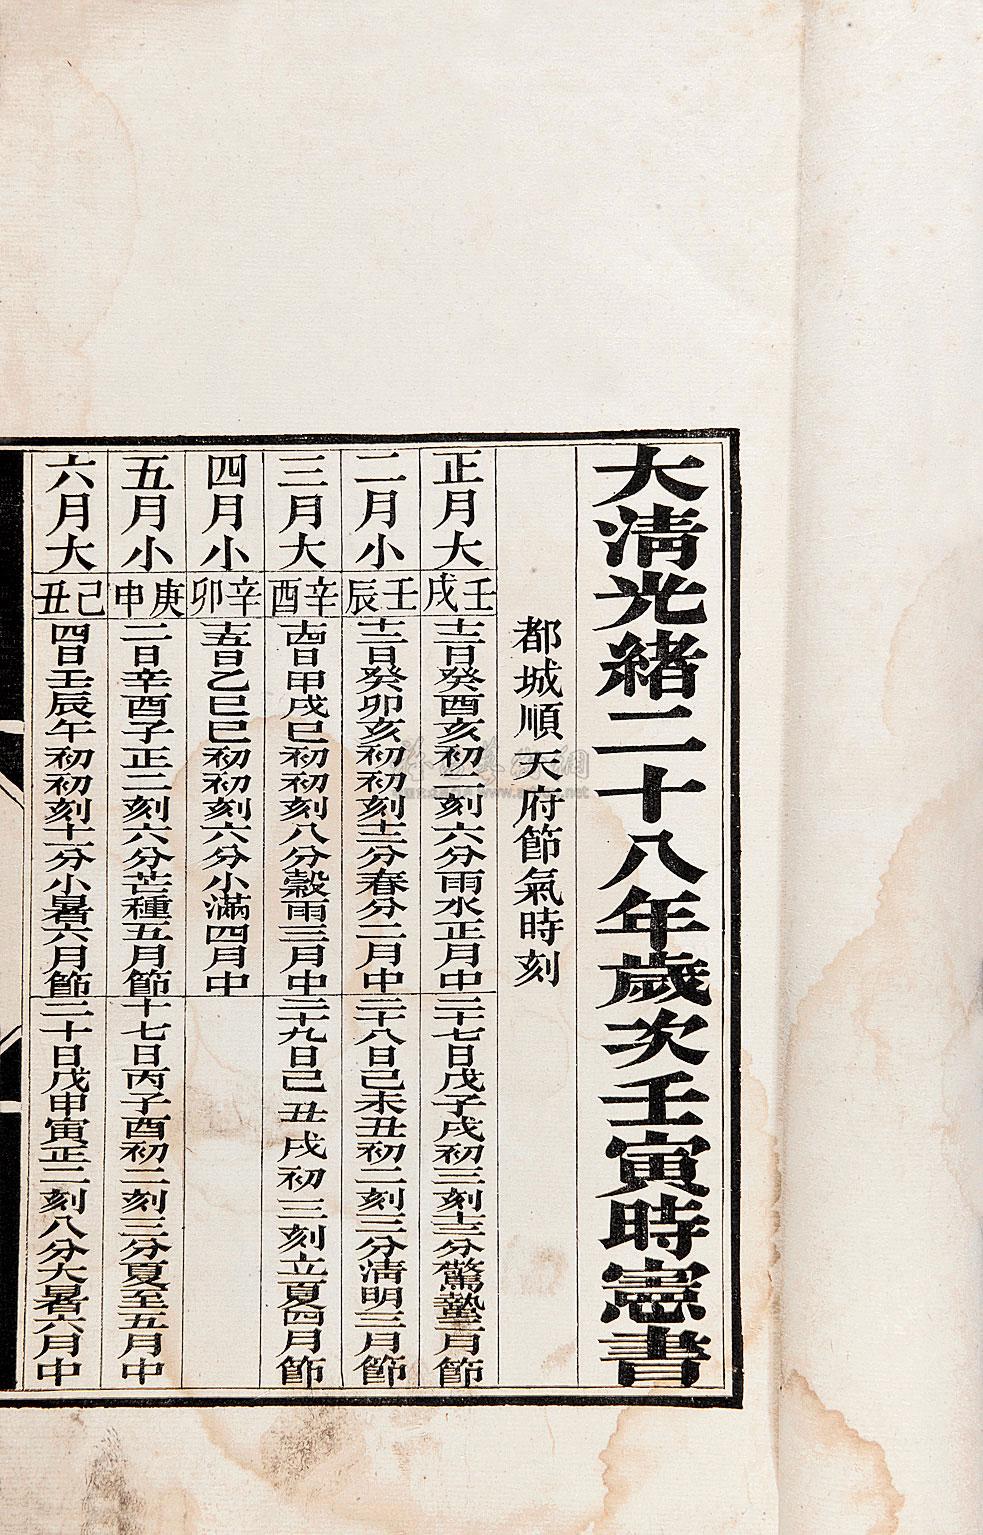 大清光緒二十八年歲次壬寅時憲書
都城順天府節氣時刻
正月大
壬戌
十二日癸酉亥初二刻六分雨水正月中
二十七日戊子戌初三刻十三分驚蟄二月節
二月小
壬辰
十二日癸卯亥初初刻十二分春分二月中
二十八日己未丑初二刻三分清明三月節
三月大
辛酉
十四日甲戌巳初初刻八分穀雨三月中
二十九日己丑戌初三刻立夏四月節
四月小
辛卯
十五日乙巳巳初初刻六分小滿四月中
五月小
庚申
二日辛酉子正二刻六分芒種五月節
十七日丙子酉初二刻三分夏至五月中
六月大
己丑
四日壬辰午初初刻十一分小暑六月節
二十日戊申寅正二刻八分大暑六月中